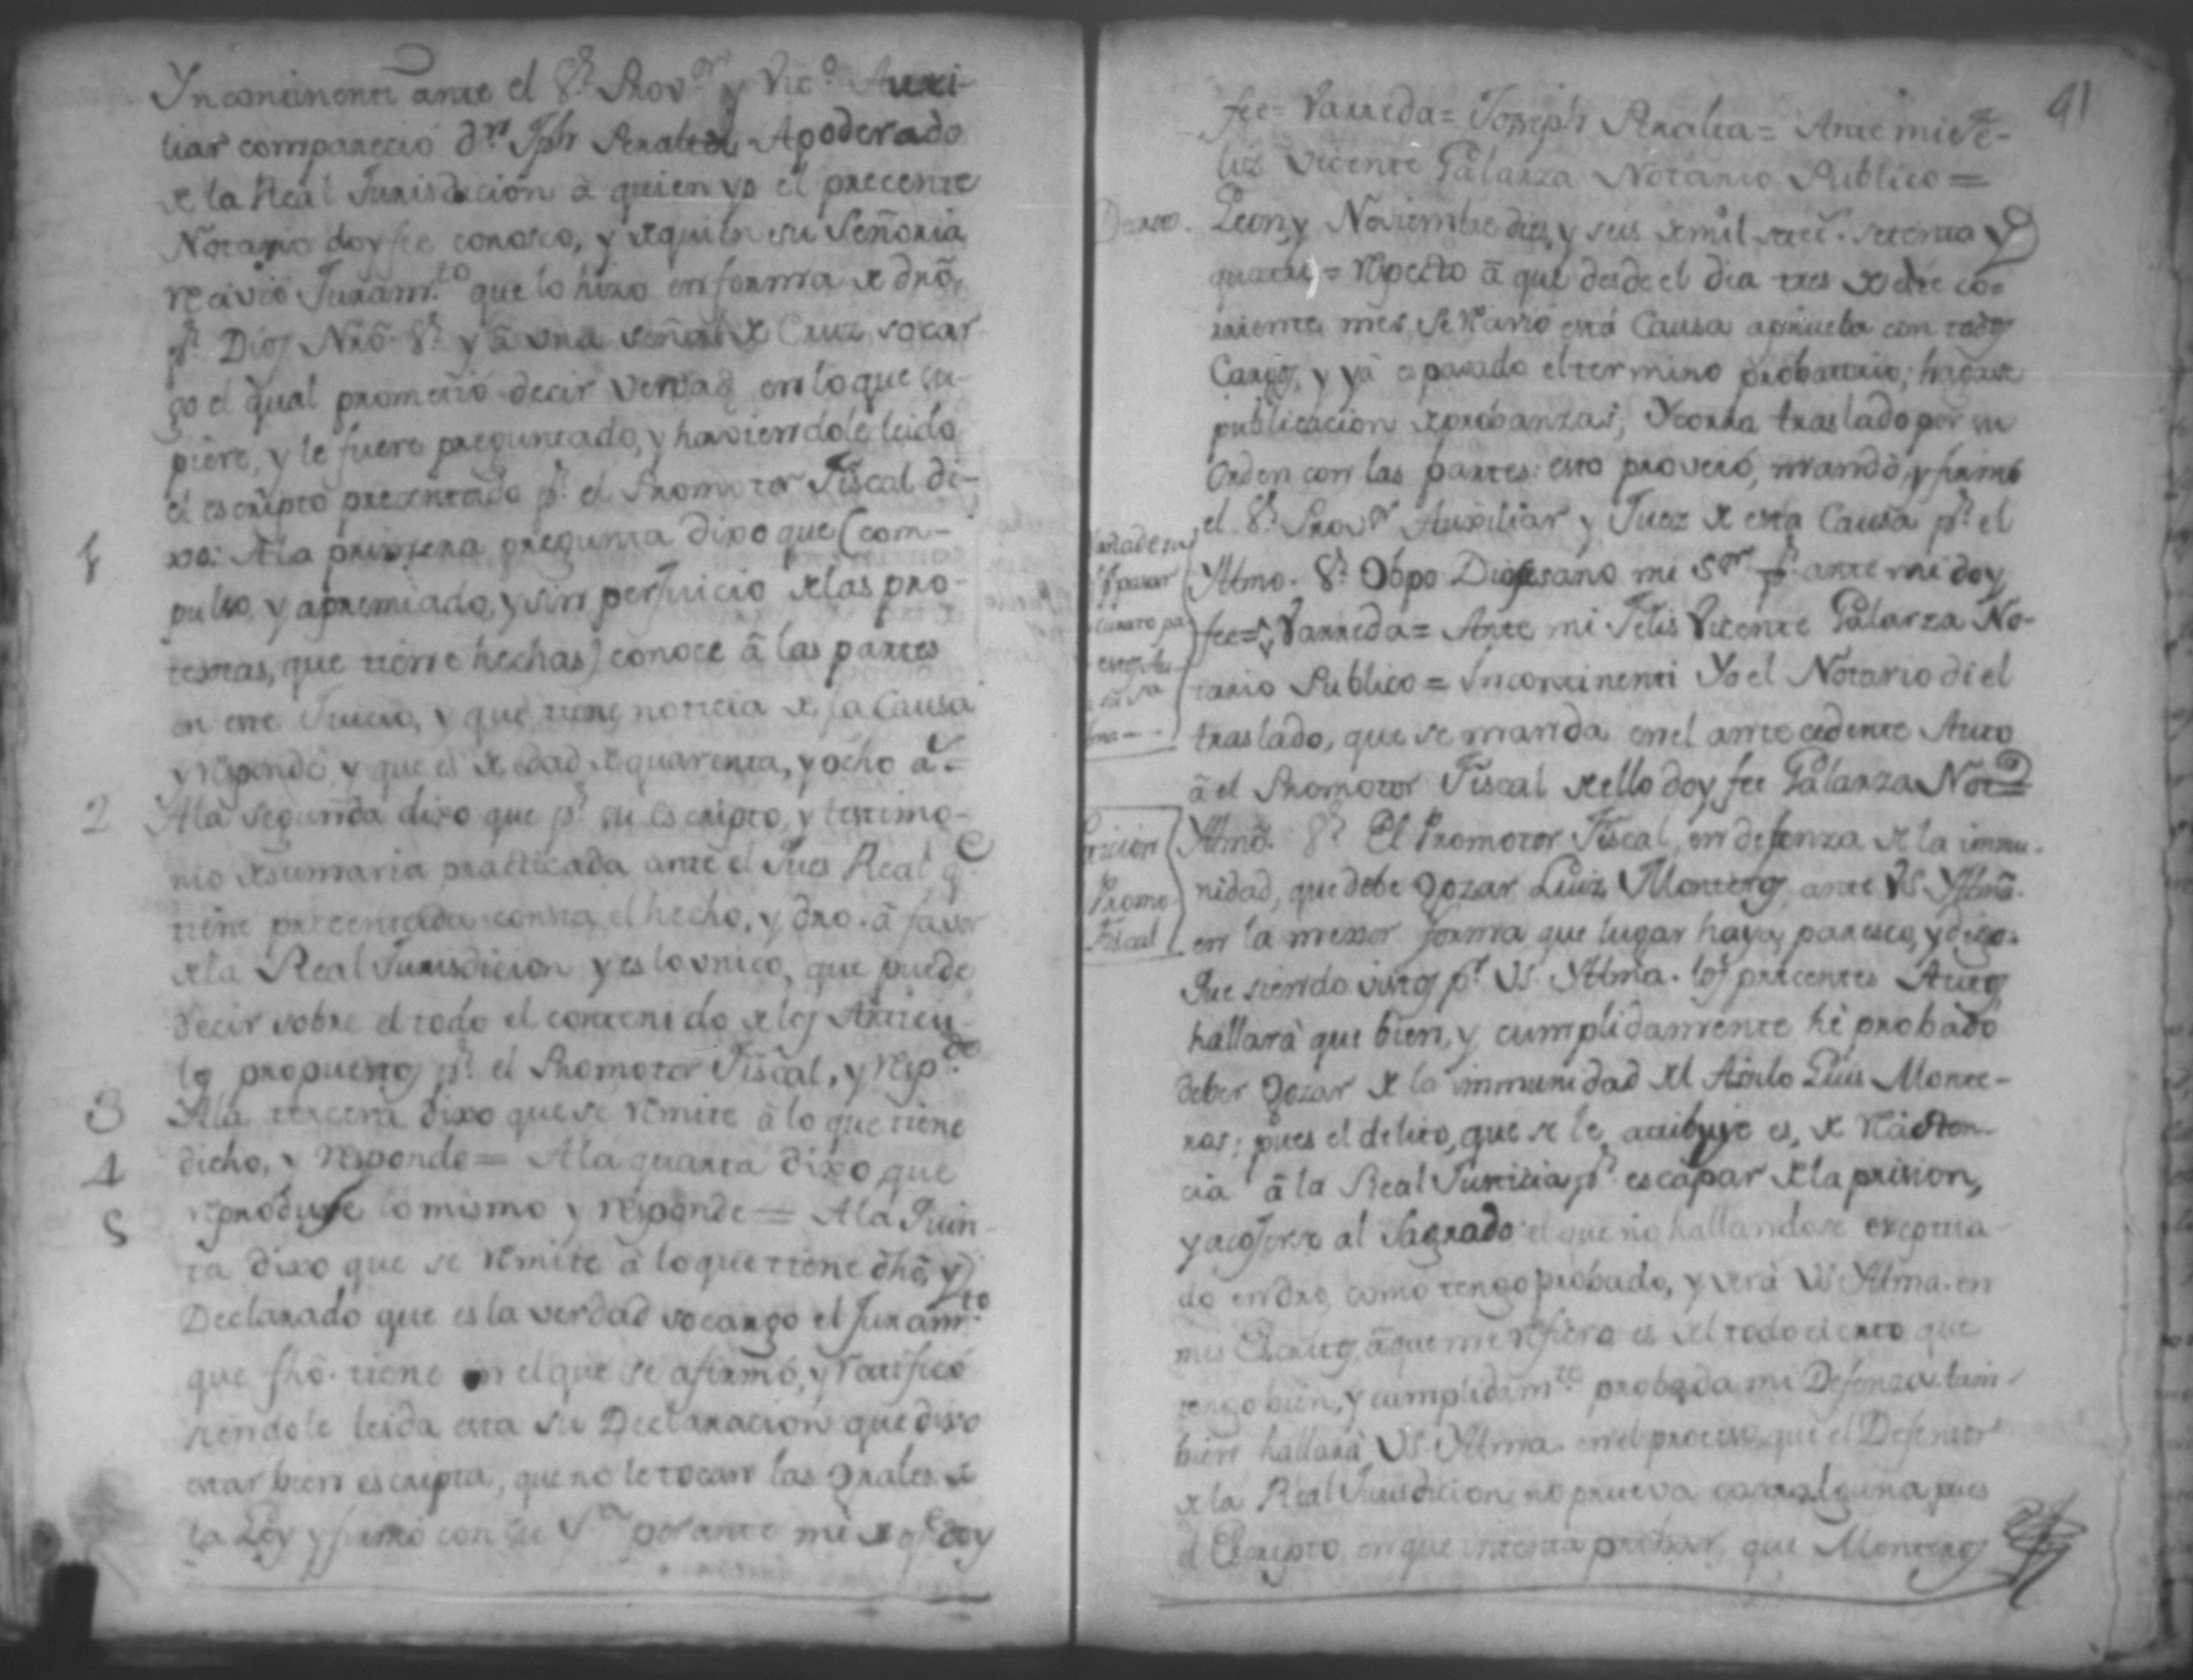 Yncontinenti ante el Sr. Provor. y Vico. Auxi-
liar comparecio dn. Jph Peralta Apoderado
de la Real Jurisdicion â quien yo el precente
Notario doy fee conosco, y de quien su Señoria
recivio Juramto. que lo hizo en forma de dro.
pr. Dios Nrô. Sr. y â una señal de Cruz, so car-
go el qual prometió decir verdad en lo que su-
piere, y le fuere preguntado, y haviendole leido
el escripto precentado pr. el Promotor Fiscal di-
1 xo: A la primera pregunta dixo que (com-
pulso, y apremiado, y sin perjuicio de las pro-
testas, que tiene hechas) conoce â las partes
en este Juicio, y que tiene noticia de la Causa
y responde y que es de edad de quarenta, y ocho as.=
2 A la segunda dixo que pr. su escripto, y testimo-
nio de sumaria practicada ante el Jues Real qe.
tiene precentada consta el hecho, y dro. â favor
de la Real Jurisdicion y es lo vnico, que puede
decir sobre el todo el contenido de los Articu-
los propuestos pr. el Promotor Fiscal, y respde.
3 A la tercera dixo que se remite â lo que tiene
4 dicho, y responde = A la quarta dixo que
5 reproduse lo mismo y responde = A la Quin-
ta dixo que se remite â lo que tiene dhô, y
Declarado que es la verdad so cargo el Juramto.
que fhô. tiene en el que se afirmó, y ratificó
siendole leida esta su Declaracion que dixo
estar bien escripta, que no le tocan las Grales. de
la Ley y firmó con su Sa. por ante mi de qe. doy
91
fee= Varreda= Joseph Peralta= Ante mi Fe-
liz Vicente Palarza Notario Publico=
Decreto. Leon, y Noviembre dies, y seis de mil setecs. setenta y
quatro= Respecto â que desde el dia tres de este co-
rriente mes se recivio esta Causa aprueba con todos
Cargos, y ya es pasado el termino probatorio; hagase
publicacion de probanzas; Y corra traslado por su
Orden con las partes: esto proveió, mandó, y firmó
el Sr. Provor. Auxiliar y Juez de esta Causa pr. el
Yltmo. Sr. Obpo Diosesano mi Sor. pr. ante mi doy
fee= Varreda= Ante mi Felis Vicente Palarza No-
tario Publico= Yncontinenti Yo el Notario di el
traslado, que se manda en el antecedente Auto
â el Promotor Fiscal de ello doy fee Palarza Noto.
Peticion
Promo-
Fiscal
Yltmô. Sr. El Promotor Fiscal, en defenza de la immu-
nidad, que debe gozar Luiz Monteros ante VS Yltmâ.
en la mexor forma que lugar haya, paresco, y digo.
Que siendo vistos pr. VS. Yltma. los precentes Autos
hallarà que bien, y cumplidamente hè probado
deber gozar de la immunidad del Asilo Luis Monte-
ros; pues el delito, que se le atribuye es, de resisten-
cia â la Real Justicia pr. escapar de la prision,
y acojerse al Sagrado el que no hallandose exeptua-
do en dro, como tengo probado, y verà VS Yltma. en
mis Escritos, â que me refiero es del todo cierto que
tengo bien, y cumplidamte. probada mi Defenza. tam-
bien hallarà VS. Yltma. en el proceso, que el Defensor
de la Real Jurisdicion no prueva cosa alguna, pues
el Escripto, en que intenta probar, que Monteros